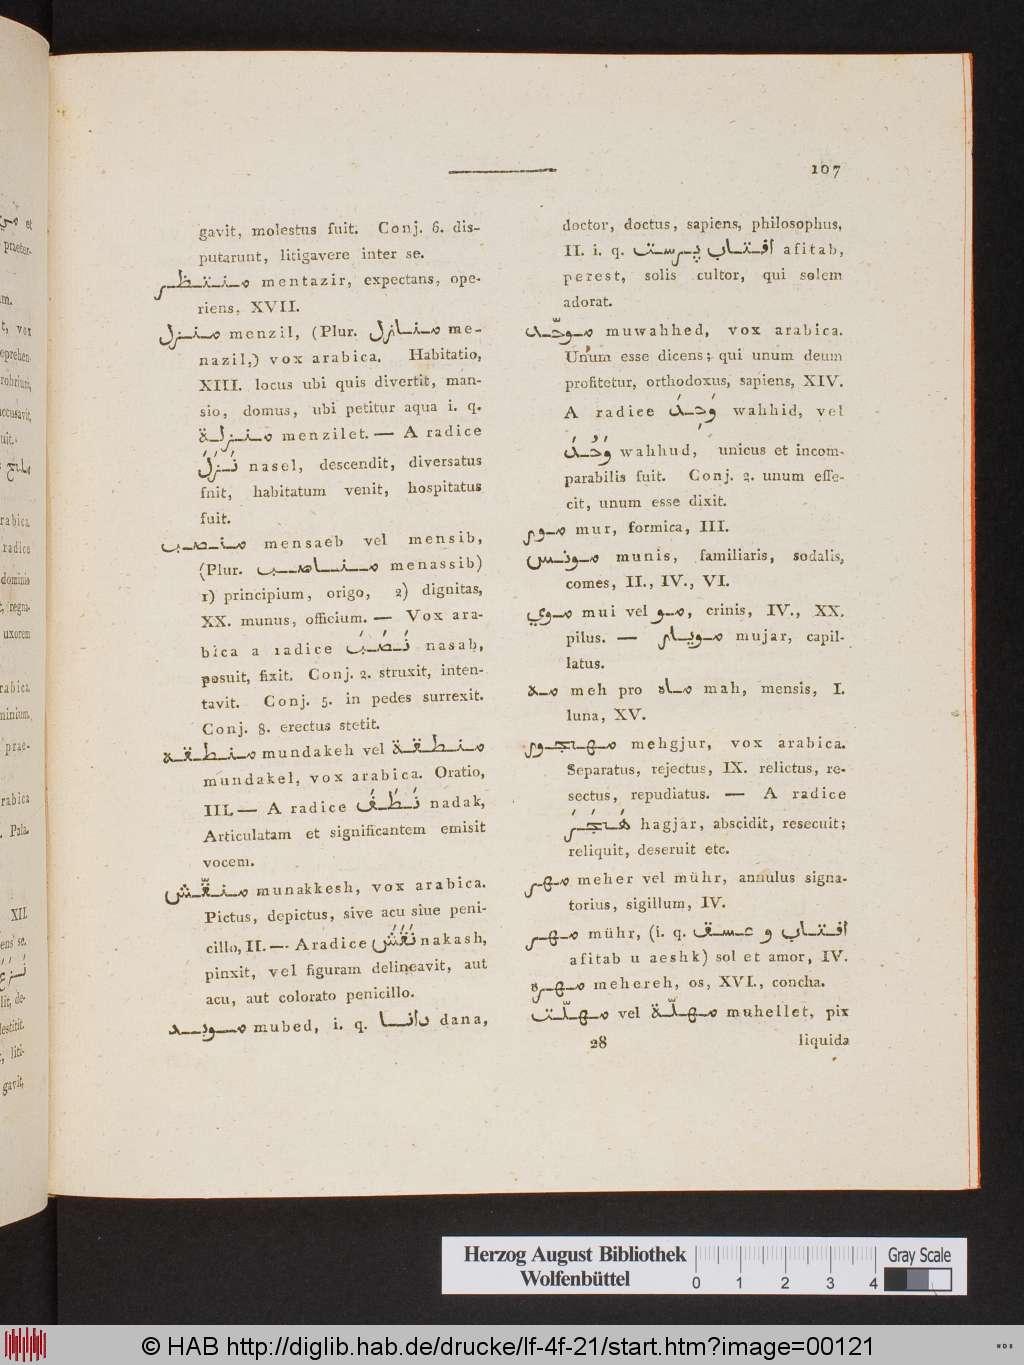 107
gavit, molestus fuit. Conj. 6. dis-
putarunt, litigavere inter se.
منتظر mentazir, expectans, ope-
riens, XVII.
منزل menzil, (Plur. منازل me-
nazil,) vox arabica. Habitatio,
XIII. locus ubi quis divertit, man-
sio, domus, ubi petitur aqua i. q.
منزلة menzilet. — A radice
نَزَلَ nasel, descendit, diversatus
fnit, habitatum venit, hospitatus
fuit.
منصب mensaeb vel mensib,
(Plur. مناصب menassib)
1) principium, origo, 2) dignitas,
XX. munus, officium. — Vox ara-
bica a radice نَصَبَ nasab,
posuit, fixit. Conj. 2. struxit, inten-
tavit. Conj. 5. in pedes surrexit.
Conj. 8. erectus stetit.
منطقة mundakeh vel منطقة
mundakel, vox arabica. Oratio,
III. — A radice نَطَقَ nadak,
Articulatam et significantem emisit
vocem.
منقّش munakkesh, vox arabica.
Pictus, depictus, sive acu siue peni-
cillo, II. — A radice نَقَشَ nakash,
pinxit, vel figuram delineavit, aut
acu, aut colorato penicillo.
موبد mubed, i. q. دانا dana,
doctor, doctus, sapiens, philosophus,
II. i. q. افتاب پرست afitab,
perest, solis cultor, qui solem
adorat.
موحّد muwahhed, vox arabica.
Unum esse dicens; qui unum deum
profitetur, orthodoxus, sapiens, XIV.
A radice وَحِدَ wahhid, vel
وَحُدَ wahhud, unicus et incom-
parabilis fuit. Conj. 2. unum effe-
cit, unum esse dixit.
مور mur, formica, III.
مونس munis, familiaris, sodalis,
comes, II., IV., VI.
موي mui vel مو, crinis, IV., XX.
pilus. — مويار mujar, capil-
latus.
مه meh pro ماه mah, mensis, I.
luna, XV.
مهجور mehgjur, vox arabica.
Separatus, rejectus, IX. relictus, re-
sectus, repudiatus. — A radice
هَجَرَ hagjar, abscidit, resecuit;
reliquit, deseruit etc.
مهر meher vel mühr, annulus signa-
torius, sigillum, IV.
مهر mühr, (i. q. افتاب و عسق
afitab u aeshk) sol et amor, IV.
مهره mehereh, os, XVI., concha.
مهلّت vel مهلّة muhellet, pix
28 liquida
Herzog August Bibliothek
Wolfenbüttel
0 1 2 3 4
Gray Scale
© HAB http://diglib.hab.de/drucke/lf-4f-21/start.htm?image=00121